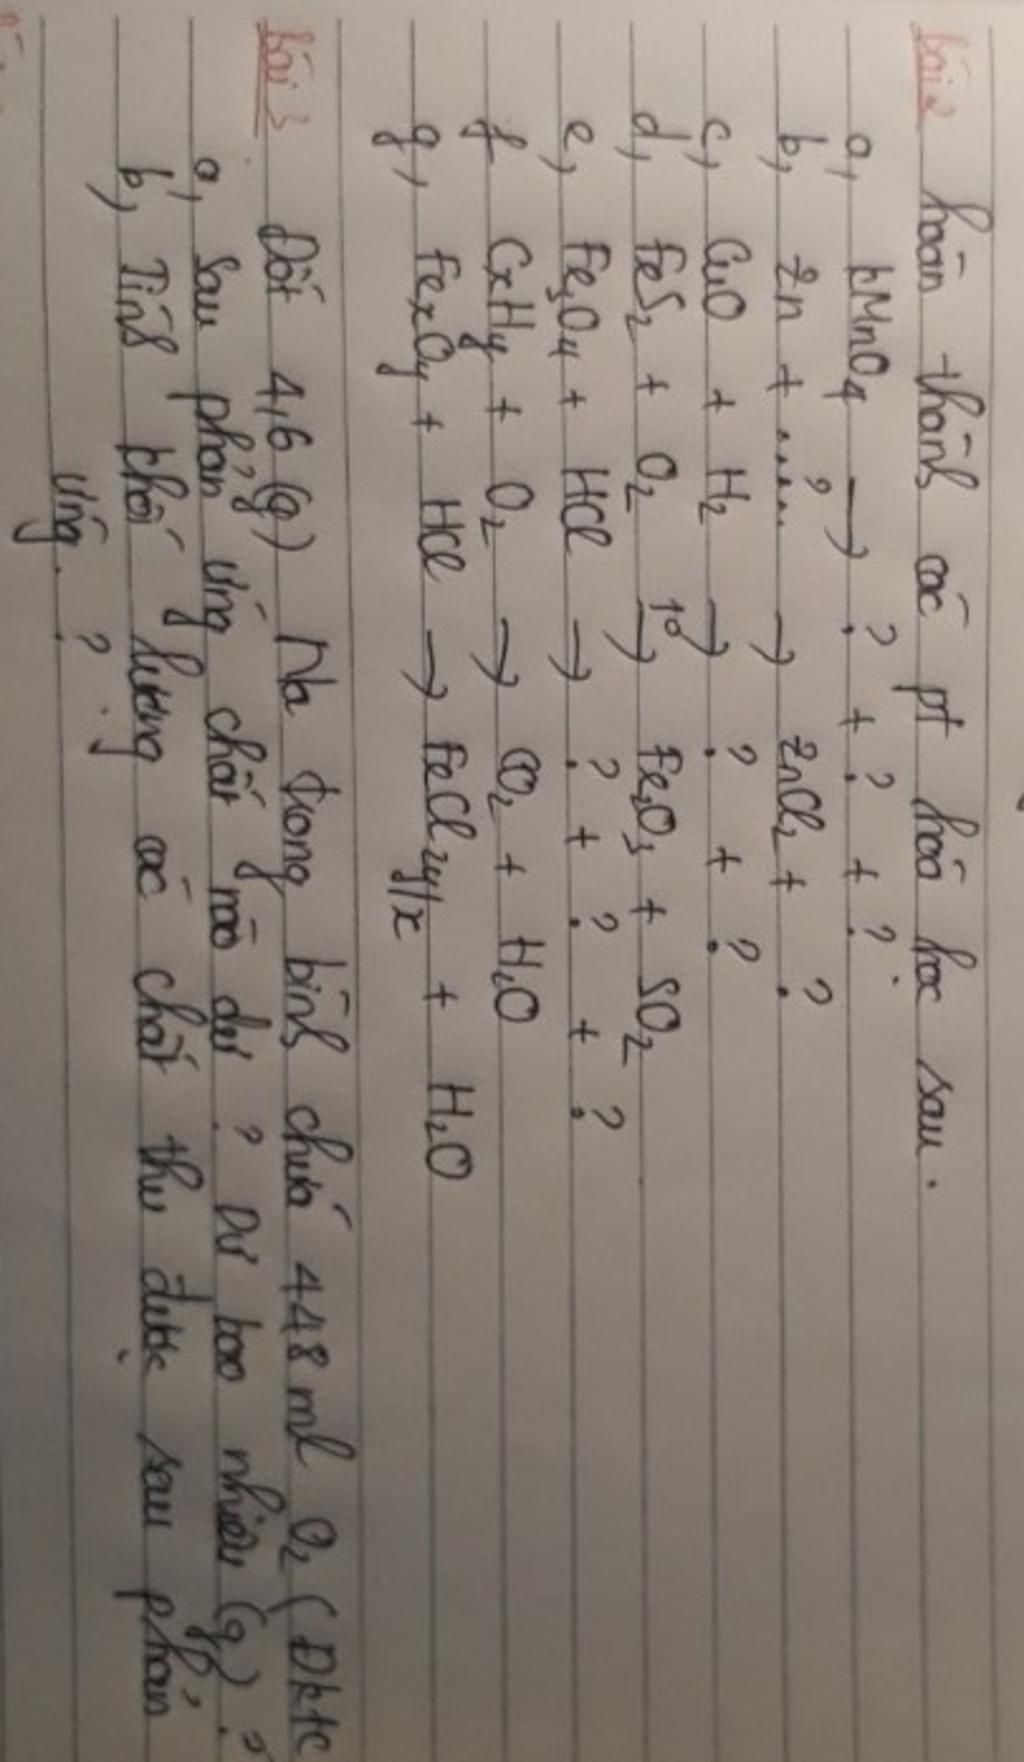 bài 2 hoàn thành các pt hoá học sau.
a, KMnO4 → ? + ? + ?
b, Zn + ....?.. → ZnCl2 + ?
c, CuO + H2 → ? + ?
d, FeS2 + O2 →t° Fe2O3 + SO2
e, Fe3O4 + HCl → ? + ? + ?
f CxHy + O2 → CO2 + H2O
g, FexOy + HCl → FeCl2y/x + H2O
bài 3 Đốt 4,6 (g) Na trong bình chứa 448 ml O2 (Đktc
a, Sau phản ứng chất nào dư ? Dư bao nhiêu (g) ?
b, Tính khối lượng các chất thu được sau phản
ứng. ?